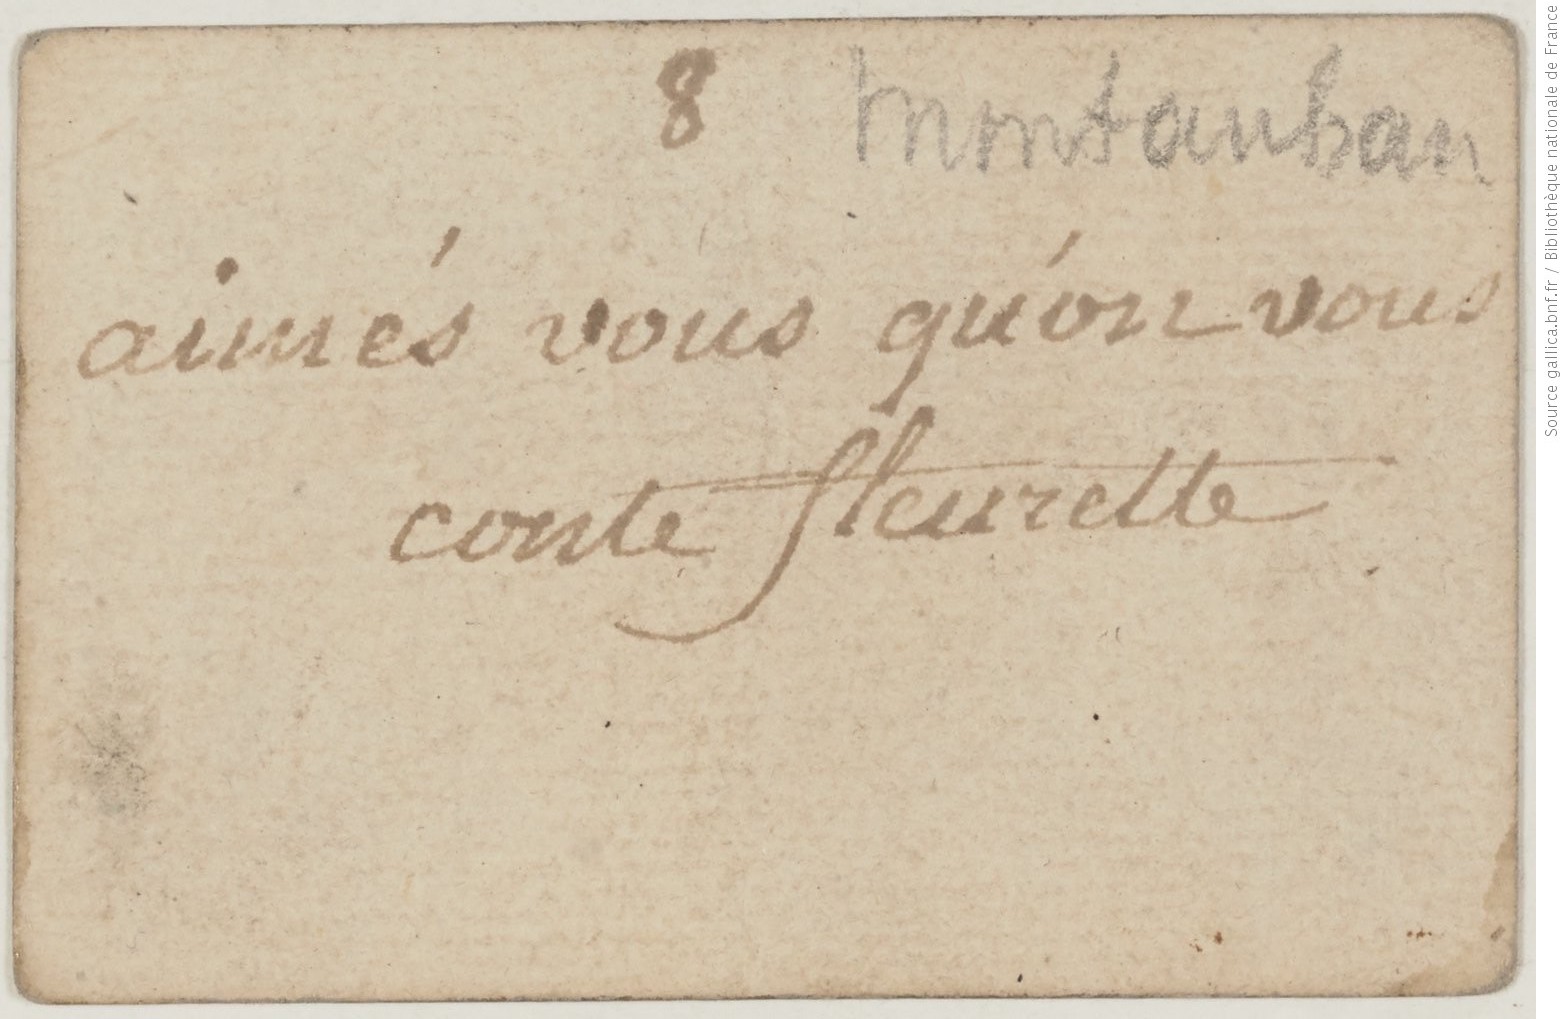 8 montauban
aimés vous qu'on vous
conte fleurette
Source gallica.bnf.fr / Bibliothèque nationale de France